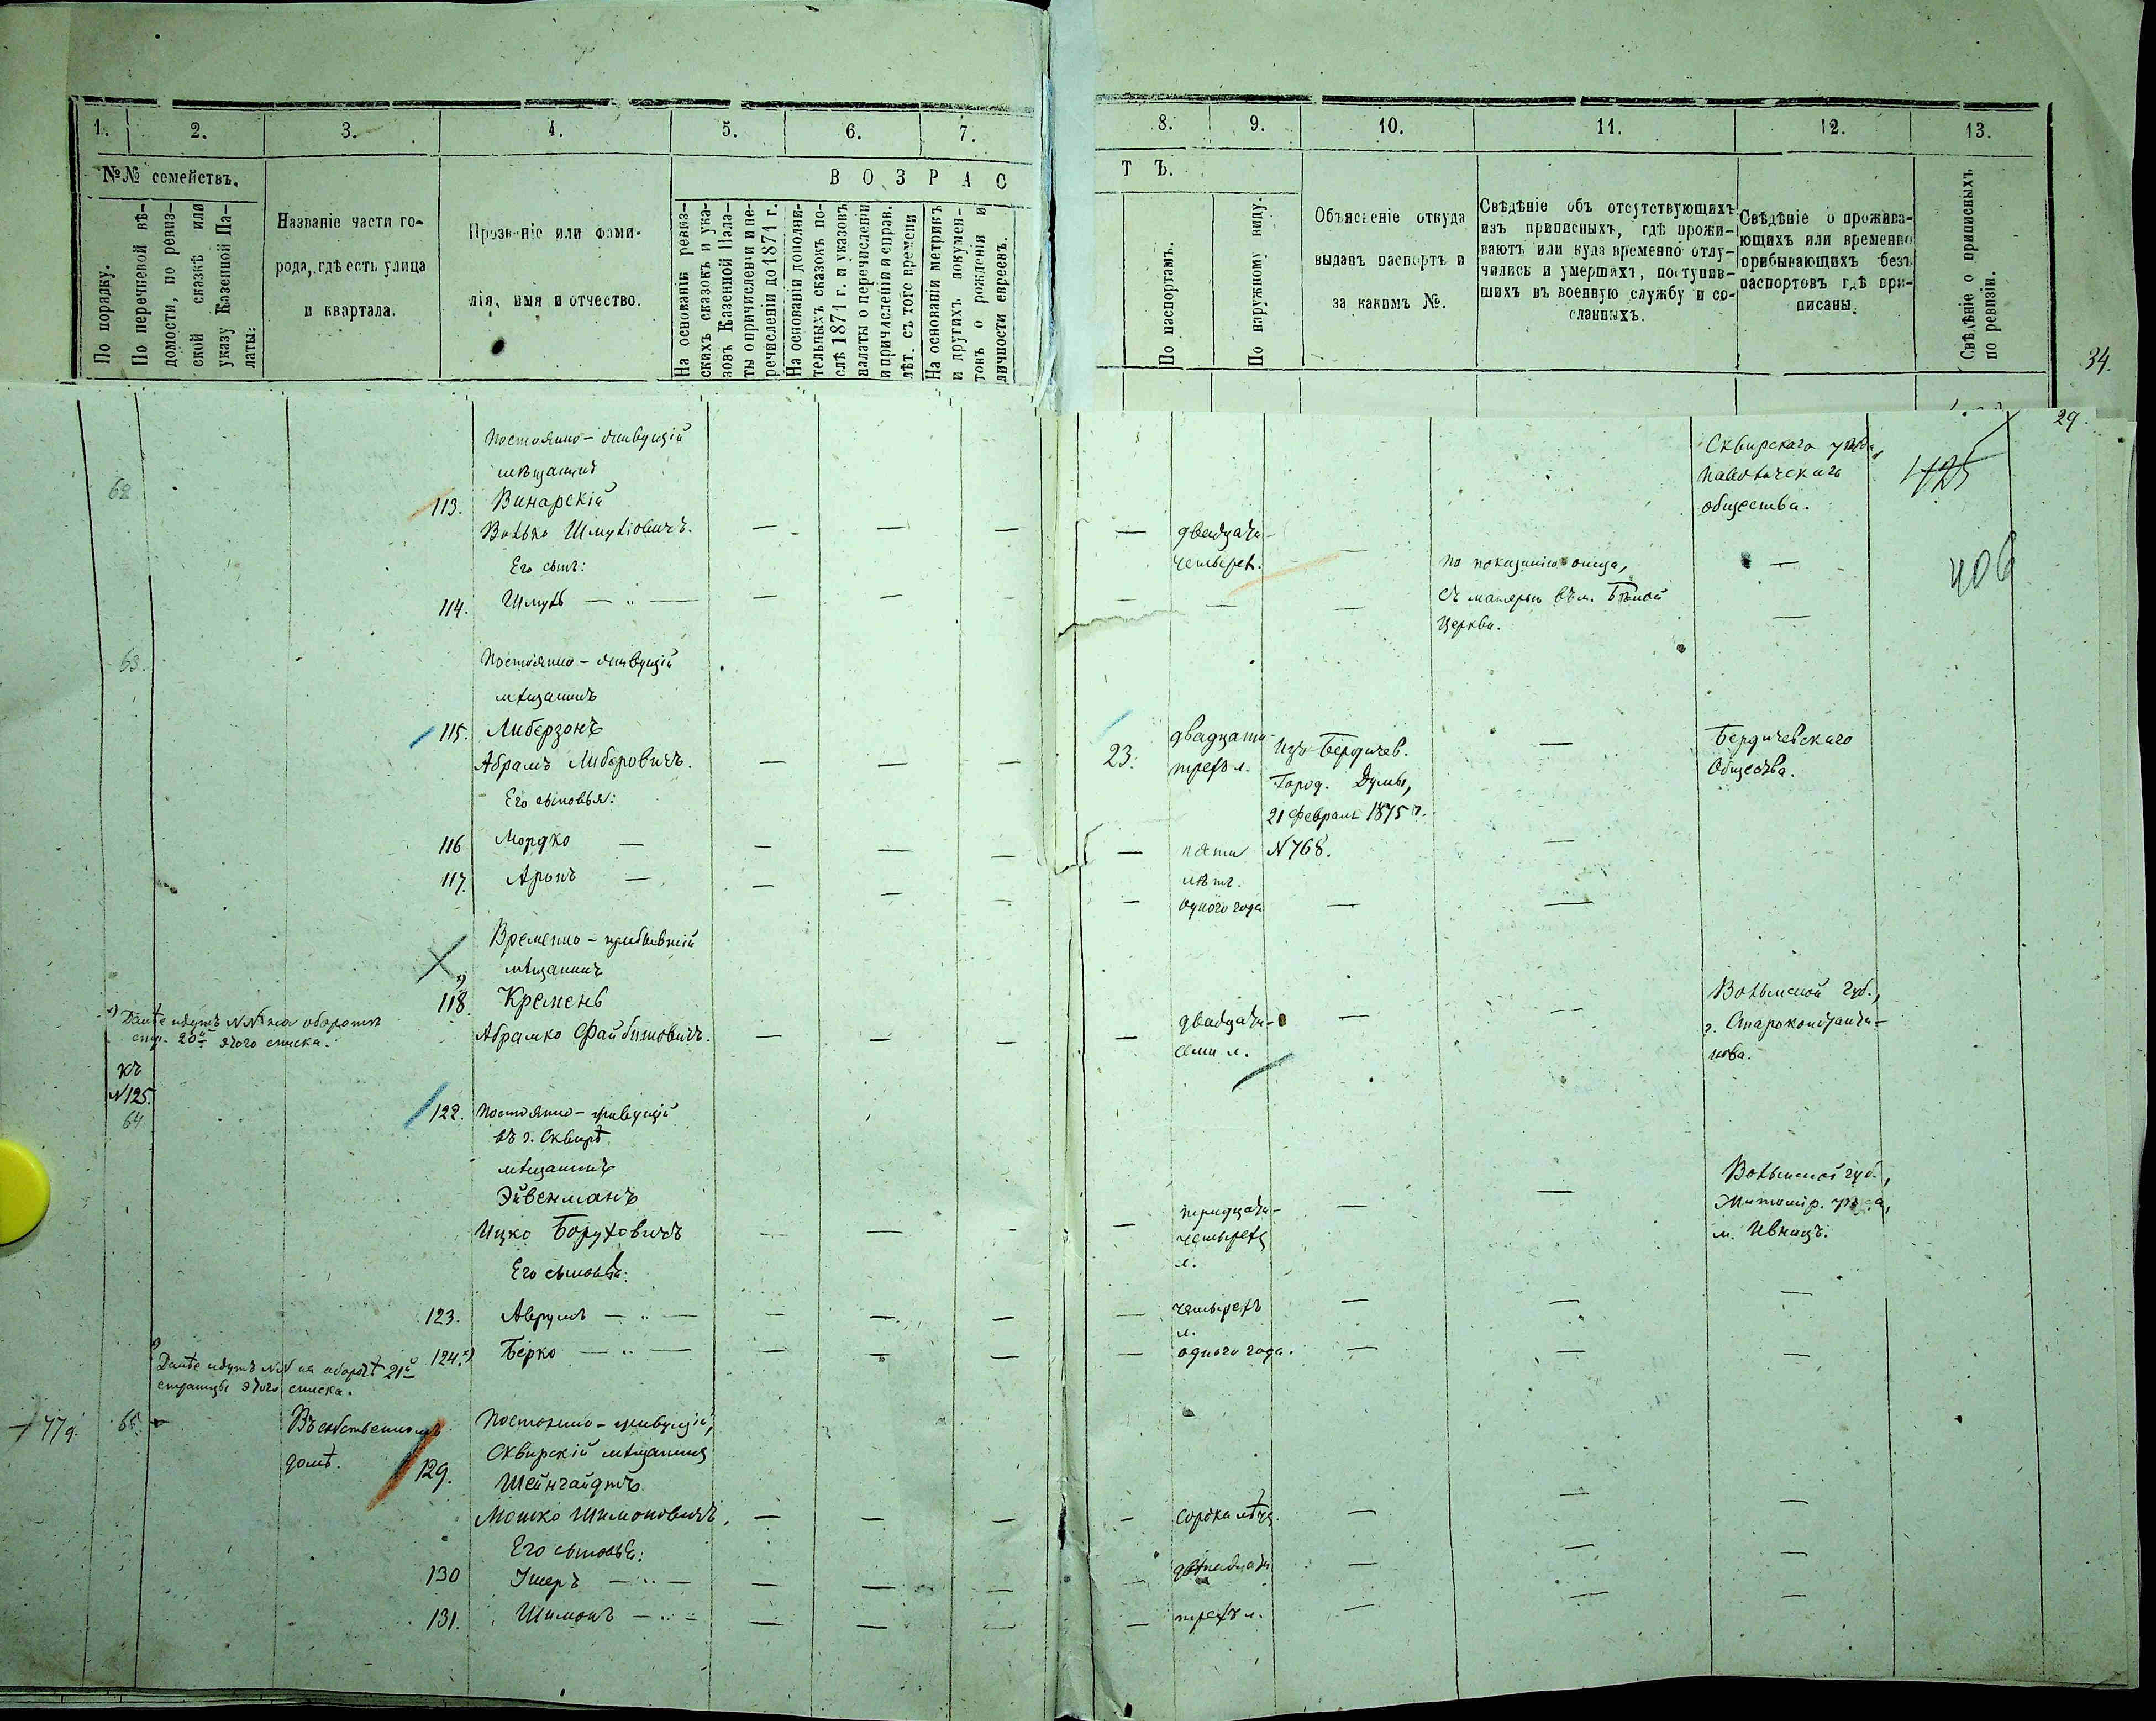 1. 2. 3. 4. 5. 6. 7. 8. 9. 10. 11. 12. 13.
№№ семействъ.
По порядку.
По перечневой вѣ-
домости, по ревиз-
ской сказкѣ или
указу Казенной Па-
латы:
Названіе части го-
рода, гдѣ есть улица
и квартала.
Прозваніе или фами-
лія, имя и отчество.
ВОЗРАС
ТЪ.
На основаніи ревиз-
скихъ сказокъ и ука-
зовъ Казенной Пала-
ты о причисленіи и пе-
речисленіи до 1871 г.
На основаніи дополни-
тельныхъ сказокъ по-
слѣ 1871 г. и указовъ
палаты о перечисленіи
и причисленіи и справ.
лѣт. съ того времени
На основаніи метрикъ
и другихъ докумен-
товъ о рожденіи и
личности евреевъ.
По паспортамъ.
По наружному виду.
Объясненіе откуда
выданъ паспортъ и
за какимъ №.
Свѣдѣніе объ отсутствующихъ
изъ приписныхъ, гдѣ прожи-
ваютъ или куда временно отлу-
чились и умершихъ, поступив-
шихъ въ военную службу и со-
сланныхъ.
Свѣдѣніе о прожива-
ющихъ или временно
прибывающихъ безъ
паспортовъ гдѣ при-
писаны.
Свѣдѣніе о приписныхъ
по ревизіи.
34.
29.
62
Постоянно-живущій
мѣщанинъ
113. Винарскій
Волько Шмулiовичъ.
двадцати-
четырех.
Сквирскаго уѣзда,
Паволочскаго
общества.
425
406
Его сынъ:
114. Шмуль — „ —
по показанію отца,
съ матерью въ м. Бѣлой
Церкви.
63.
Постоянно-живущій
мѣщанинъ
115. Либерзонъ
Абрамъ Либеровичъ.
23.
двадцати-
трехъ л.
Изъ Бердичев.
Город. Думы,
21 Февраля 1875 г.
N 768.
Бердичевскаго
Общества.
Его сыновья:
116 Мордко —
пяти
лѣтъ.
117. Аронъ —
одного года
Временно-прибывшій
мѣщанинъ
118. Кремень
Абрамко Файбишовичъ.
двадцати-
семи л.
Волынской Губ.,
г. Староконстанти-
нова.
Далѣе идутъ NN на оборотѣ
стр. 20й этого списка.
къ
N 125.
64
122. Постоянно-живущій
въ г. Сквирѣ
мѣщанинъ
Эйвенманъ
Ицко Боруховичъ
тридцати-
четырехъ
л.
Волынской губ.,
Житомір. уѣзда,
м. Ивницъ.
Его сыновья:
123. Аврумъ — „ —
четырехъ
л.
124.х) Берко — „ —
одного года.
х) Далѣе идутъ NN на оборотѣ 21й
страницы этого списка.
77 д.
65
Въ собственномъ
домѣ.
129.
Постоянно-живущій,
Сквирскій мѣщанинъ
Шейнгайдтъ
Мошко Шимоновичъ.
сорока лѣтъ.
Его сыновья:
130 Ушеръ — „ —
двѣнадцати
131. Шимонъ — „ —
трехъ л.